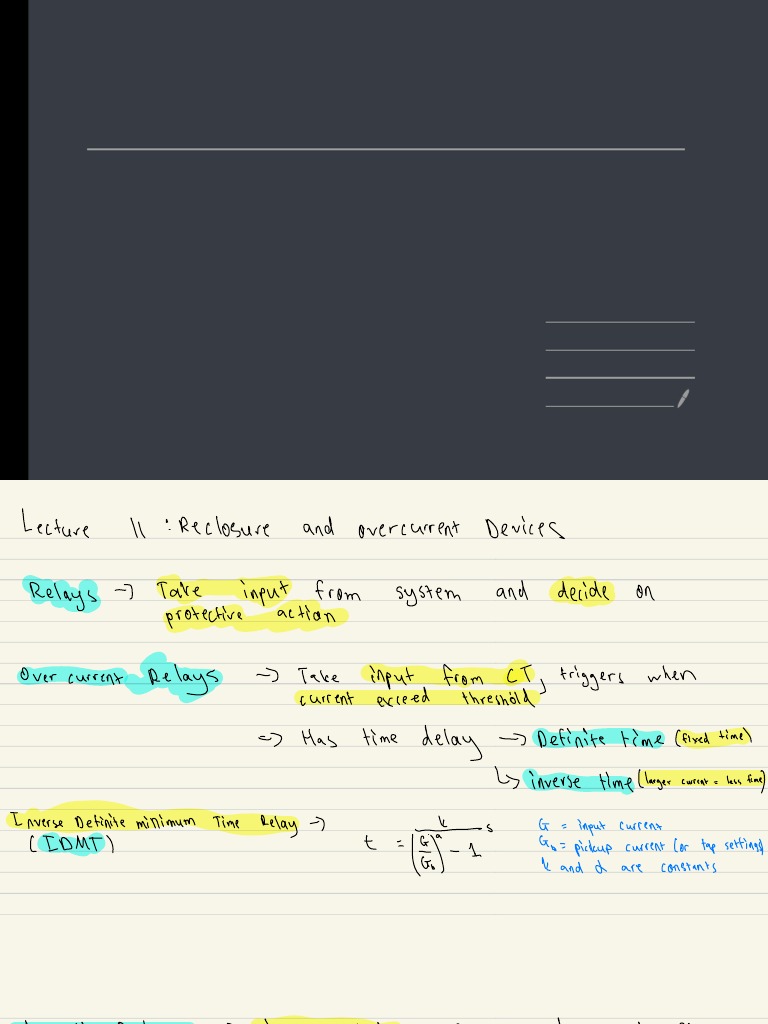 Lecture 11 : Reclosure and overcurrent Devices
Relays → Take input from system and decide on
protective action
Over current Relays → Take input from CT, triggers when
current exceed threshold
⇒ Has time delay → Definite time (fixed time)
↳ inverse time (larger current = less time)
Inverse Definite minimum Time Relay →
(IDMT)
t = k / ((G/G_b)^α - 1) s
G = input current
G_b = pickup current (or tap setting)
k and α are constants